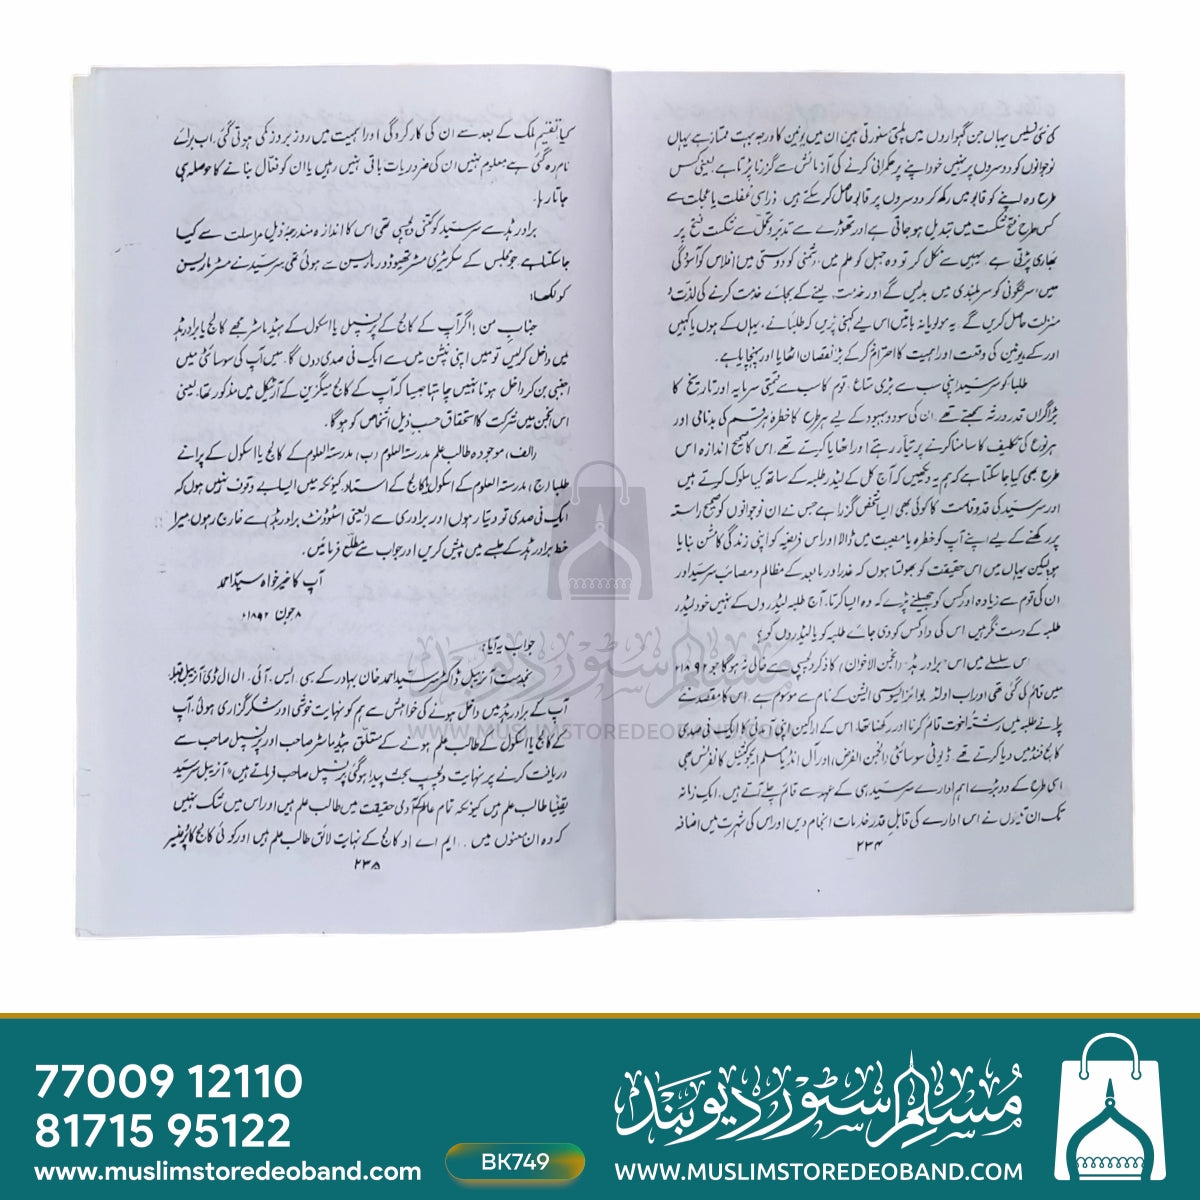 کی نئی نسلیں یہاں جن گہواروں میں پلتی سنورتی ہیں ان میں یونین کا درجہ بہت ممتاز ہے یہاں
نوجوانوں کو دوسروں پر نہیں خود اپنے پر حکمرانی کرنے کی آزمائش سے گزرنا پڑتا ہے یعنی کس
طرح وہ اپنے کو قابو میں رکھ کر دوسروں پر قابو حاصل کر سکتے ہیں، ذرا سی غفلت یا عجلت سے
کس طرح فتح شکست میں تبدیل ہو جاتی ہے اور تھوڑے سے تدبر و تحمل سے شکست فتح پر
بھاری پڑتی ہے۔ یہیں سے نکل کر تو وہ جہل کو علم میں، دشمنی کو دوستی میں، افلاس کو آسودگی
میں، سرنگونی کو سربلندی میں بدلیں گے اور خدمت لینے کے بجائے خدمت کرنے کی لذت و
منزلت حاصل کریں گے۔ یہ مولویانہ باتیں اس لیے کہنی پڑیں کہ طلبا نے، یہاں کے ہوں یا کہیں
اور کے، یونین کی وقعت اور اہمیت کا احترام کم کر کے بڑا نقصان اٹھایا اور پہنچایا ہے۔
طلبا کو سرسید اپنی سب سے بڑی متاع، قوم کا سب سے قیمتی سرمایہ اور تاریخ کا
بڑا گراں قدر ورثہ سمجھتے تھے۔ ان کی سود و بہبود کے لیے ہر طرح کا خطرہ ہر قسم کی بدنامی اور
ہر نوع کی تکلیف کا سامنا کرنے پر تیار رہتے اور اٹھایا کیے تھے، اس کا صحیح اندازہ اس
طرح بھی کیا جا سکتا ہے کہ ہم یہ دیکھیں کہ آج کل کے لیڈر طلبہ کے ساتھ کیا سلوک کرتے ہیں
اور سرسید کی قد و قامت کا کوئی بھی ایسا شخص گزرا ہے جس نے ان نوجوانوں کو صحیح راستہ
پر رکھنے کے لیے اپنے آپ کو خطرہ یا مصیبت میں ڈالا اور اس فریضہ کو اپنی زندگی کا مشن بنایا
ہو لیکن یہاں میں اس حقیقت کو بھولتا ہوں کہ غدر اور مابعد کے مظالم و مصائب سرسید اور
ان کی قوم سے زیادہ اور کس کو جھیلنے پڑے کہ وہ ایسا کرتا، آج طلبہ لیڈروں کے نہیں خود لیڈر
طلبہ کے دست نگر ہیں اس کی داد کس کو دی جائے طلبہ کو یا لیڈروں کو؟
اس سلسلے میں اس "برادرہڈ" (انجمن الاخوان) کا ذکر دلچسپی سے خالی نہ ہوگا جو ۱۸۹۲ء
میں قائم کی گئی تھی اور اب اولڈ بوائز ایسوسی ایشن کے نام سے موسوم ہے۔ اس کا مقصد نئے
پرانے طلبہ میں رشتۂ اخوت قائم کرنا اور رکھنا تھا، اس کے اراکین اپنی آمدنی کا ایک فی صدی
کالج فنڈ میں دیا کرتے تھے۔ ڈیوٹی سوسائٹی (انجمن الفرض) اور آل انڈیا مسلم ایجوکیشنل کانفرنس بھی
اسی طرح کے دو بڑے اہم ادارے سرسید ہی کے عہد سے قائم چلے آتے ہیں۔ ایک زمانہ
تک ان تینوں نے اس ادارے کی قابل قدر خدمات انجام دیں اور اس کی شہرت میں اضافہ
۲۳۴
کیا تقسیم ملک کے بعد سے ان کی کارکردگی اور اہمیت میں روز بروز کمی ہوتی گئی، اب برائے
نام رہ گئی ہے معلوم نہیں ان کی ضروریات باقی نہیں رہیں یا ان کو فعال بنانے کا حوصلہ ہی
جاتا رہا۔
برادرہڈ سے سرسید کو کتنی دلچسپی تھی اس کا اندازہ مندرجہ ذیل مراسلت سے کیا
جا سکتا ہے جو مجلس کے سکریٹری مسٹر تھیوڈور ماریسن سے ہوئی تھی۔ سرسید نے مسٹر ماریسن
کو لکھا:
جناب من! اگر آپ کے کالج کے پرنسپل یا اسکول کے ہیڈ ماسٹر مجھے کالج یا برادرہڈ
میں داخل کر لیں تو میں اپنی پنشن میں سے ایک فی صدی دوں گا۔ میں آپ کی سوسائٹی میں
اجنبی بن کر داخل ہونا نہیں چاہتا جیسا کہ آپ کے کالج میگزین کے آرٹیکل میں مذکور تھا، یعنی
اس انجمن میں شرکت کا استحقاق حسب ذیل اشخاص کو ہوگا۔
(الف) موجودہ طالب علم مدرسۃ العلوم (ب) مدرسۃ العلوم کے کالج یا اسکول کے پرانے
طلبا (ج) مدرسۃ العلوم کے اسکول یا کالج کے استاد کیونکہ میں ایسا بے وقوف نہیں ہوں کہ
ایک فی صدی تو دیتا رہوں اور برادری سے (یعنی اسٹوڈنٹ برادرہڈ) سے خارج رہوں، میرا
خط برادرہڈ کے جلسے میں پیش کریں اور جواب سے مطلع فرمائیں۔
آپ کا خیر خواہ سید احمد
۸ جون ۱۸۹۲ء
جواب یہ آیا:
بخدمت آنریبل ڈاکٹر سرسید احمد خان بہادر کے سی۔ ایس۔ آئی۔ ال ال ڈی آنریبل قبلہ
آپ کے برادرہڈ میں داخل ہونے کی خواہش سے ہم کو نہایت خوشی اور شکر گزاری ہوئی، آپ
کے کالج یا اسکول کے طالب علم ہونے کے متعلق ہیڈ ماسٹر صاحب اور پرنسپل صاحب سے
دریافت کرنے پر نہایت دلچسپ بحث پیدا ہوگئی پرنسپل صاحب فرماتے ہیں "آنریبل سرسید
یقیناً طالب علم ہیں کیونکہ تمام عالم آدمی حقیقت میں طالب علم ہیں اور اس میں شک نہیں
کہ وہ ان معنوں میں .. ایم اے او کالج کے نہایت لائق طالب علم ہیں اور کوئی کالج کا پڑھنے
۲۳۵
مسلم سٹور دیوبند
WWW.MUSLIMSTOREDEOBAND.COM
77009 12110
81715 95122
www.muslimstoredeoband.com
BK749
مسلم سٹور دیوبند
WWW.MUSLIMSTOREDEOBAND.COM